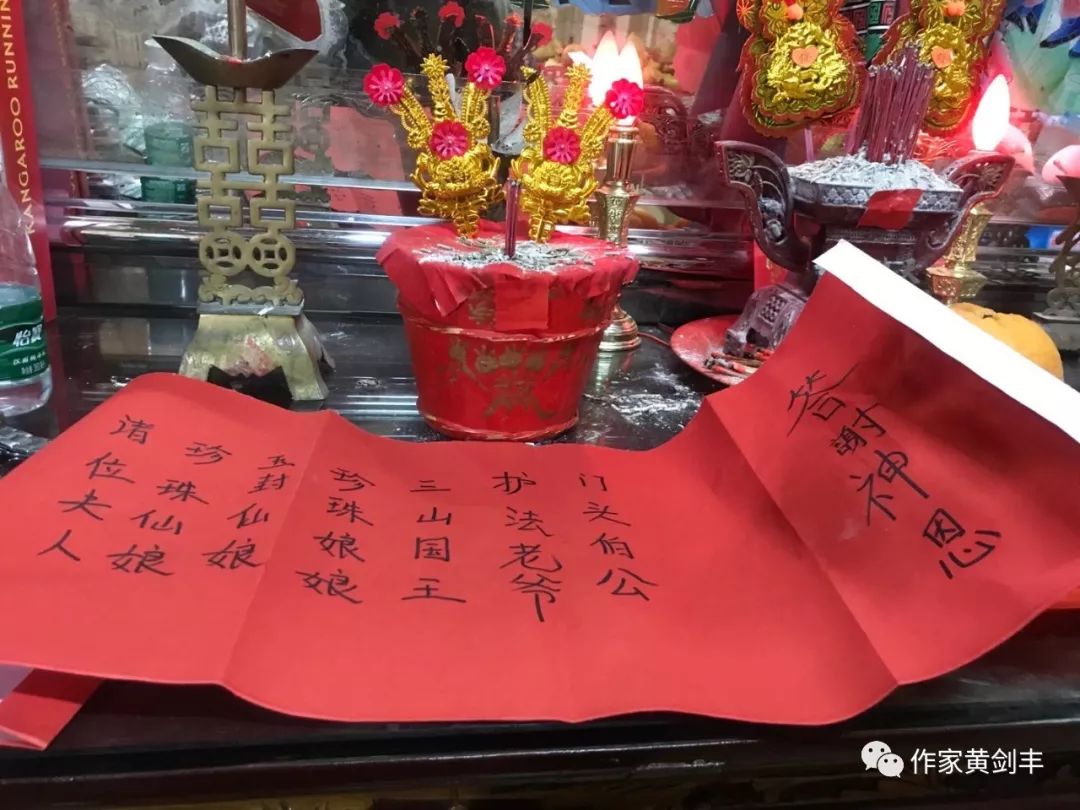 答谢神恩
门头伯公
护法老爷
三山国王
珍珠娘娘
五封仙娘
珍珠仙娘
诸位夫人
KANGAROO RUNNIN
怡宝
作家黄剑丰